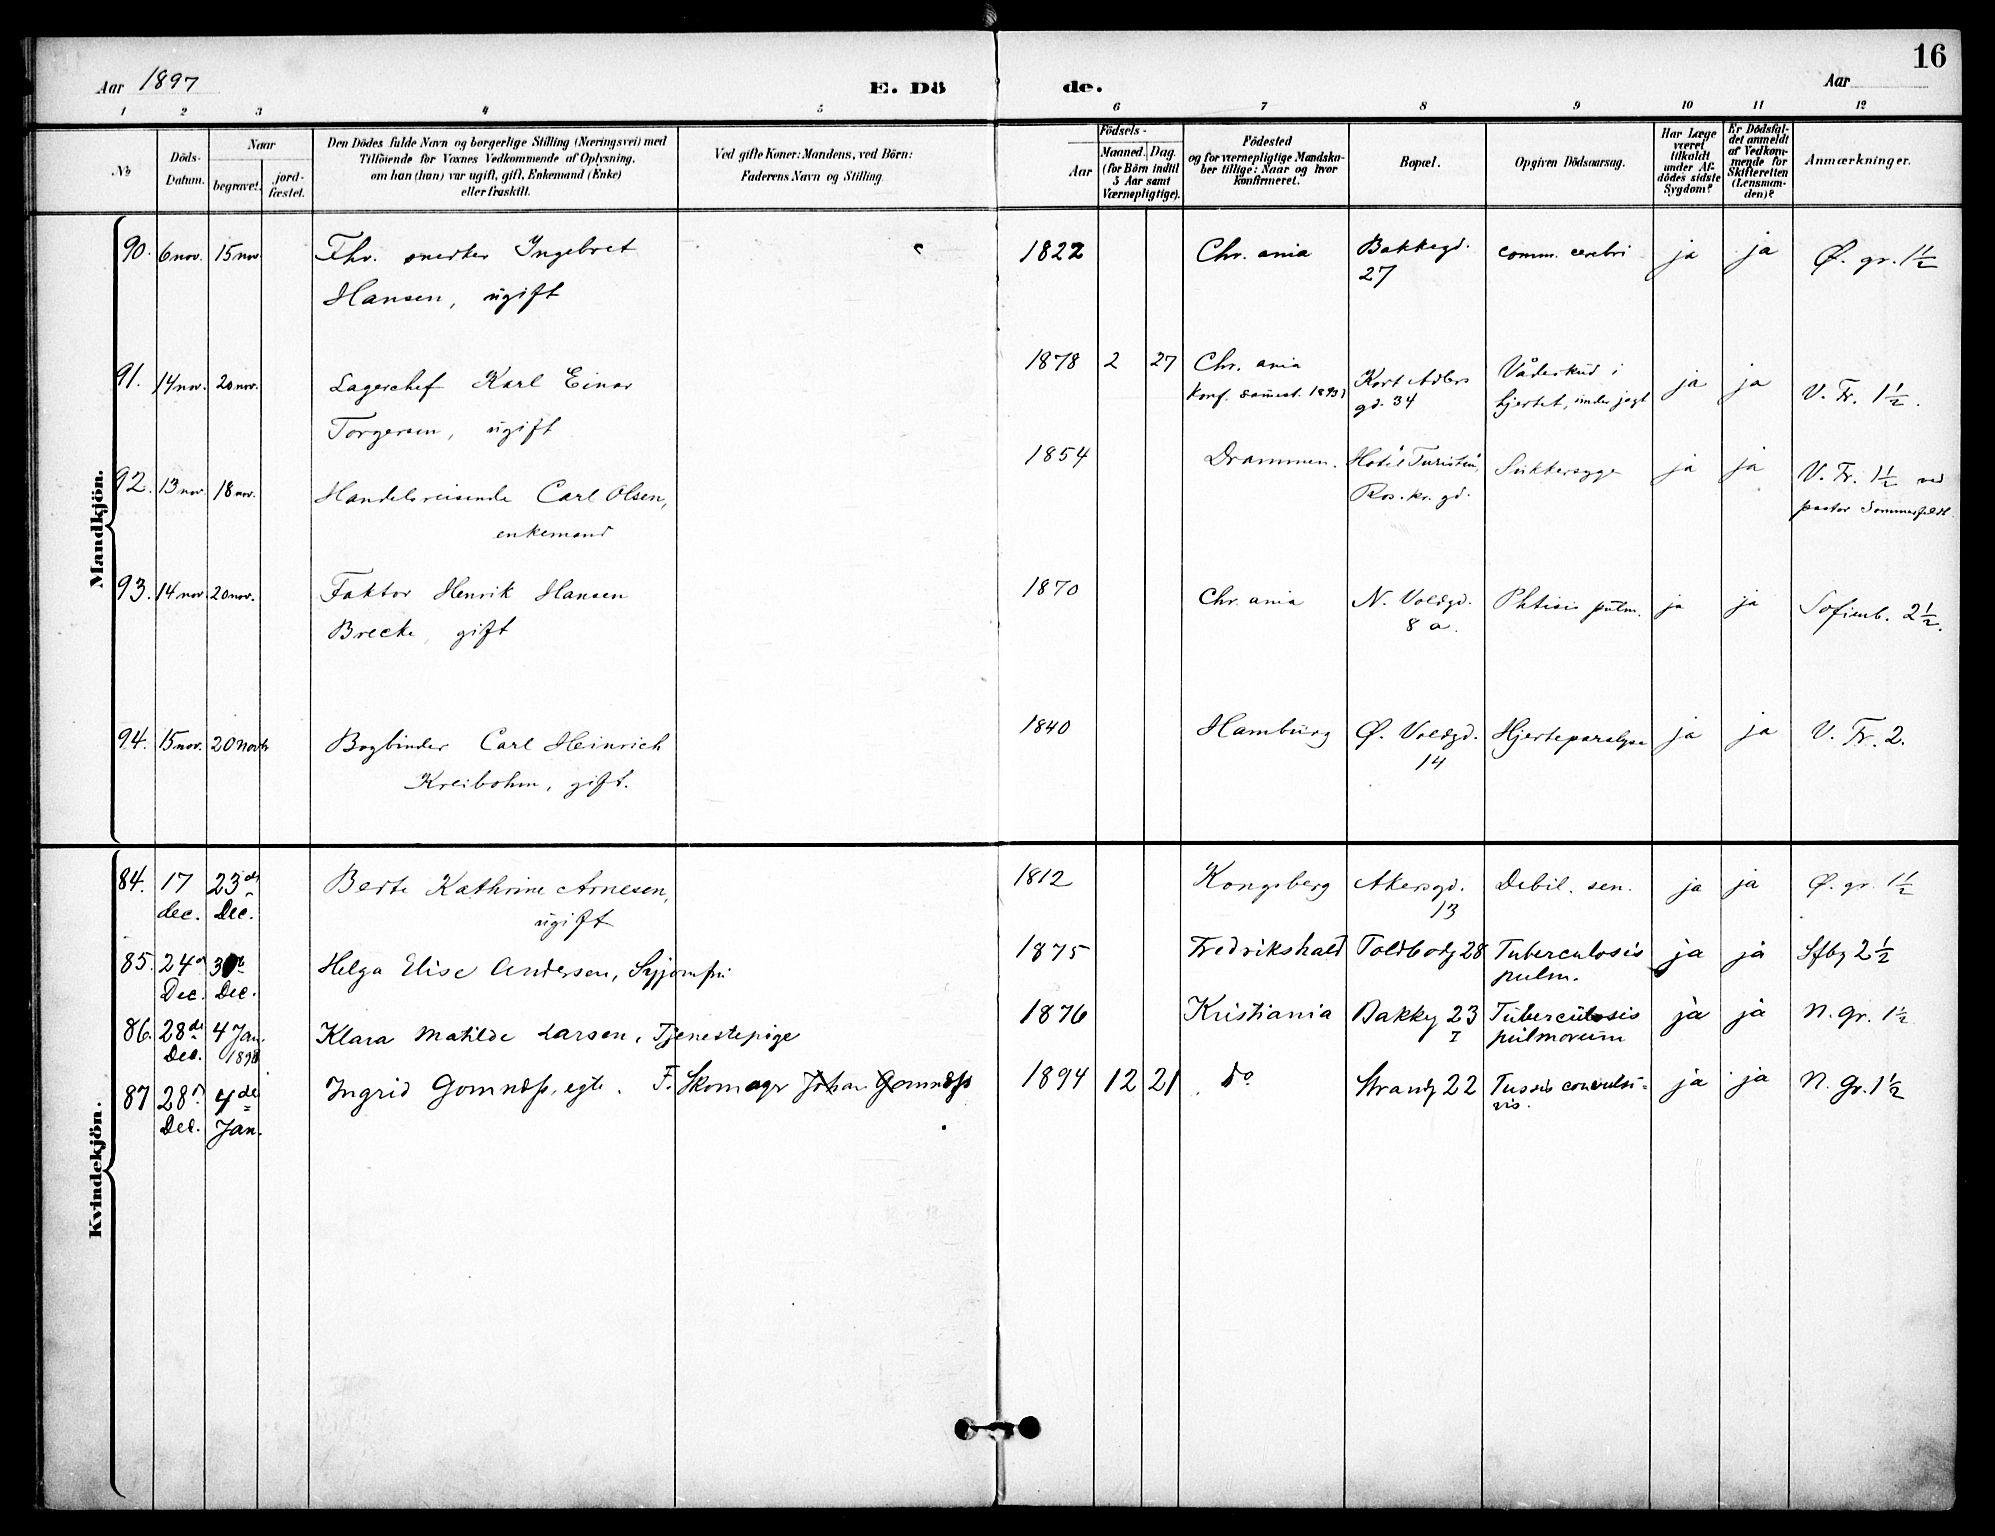 16
Aar 1897
E. Dö
de.
Aar
1 2 3 4 5 6 7 8 9 10 11 12
No
Döds-
Datum.
Naar
begravet.
jord-
fæstet.
Den Dödes fulde Navn og borgerlige Stilling (Næringsvei) med
Tilföiende for Voxnes Vedkommende af Oplysning,
om han (hun) var ugift, gift, Enkemand (Enke)
eller fraskilt.
Ved gifte Koner: Mandens, ved Börn:
Faderens Navn og Stilling.
Födsels-
Aar
Maaned.
Dag.
(for Börn indtil
5 Aar samt
Værnepligtige).
Födested
og for værnepligtige Mandska-
ber tillige: Naar og hvor
konfirmeret.
Bopæl.
Opgiven Dödsaarsag.
Har Læge
været
tilkaldt
under Af-
dödes sidste
Sygdom?
Er Dödsfal-
det anmeldt
af Vedkom-
mende for
Skifteretten
(Lensman-
den)?
Anmærkninger.
Mandkjön.
90. 6 nov. 15 nov. Fhv. snedker Ingebret 1822 Chr.ania Bakkegd. comm. cerebri ja ja Ø. gr. 1½
Hansen, ugift 27
91. 14 nov. 20 nov. Lagerchef Karl Einar 1878 2 27 Chr.ania Kort Adlers Vådeskud i ja ja V. Fr. 1½.
Torgersen, ugift Konf. 1893 gd. 34 hjertet, under jagt
92. 13 nov. 18 nov. Handelsreisende Carl Olsen, 1854 Drammen. Hotel Turisten, Sukkersyge ja ja V. Fr. 1½ ved
enkemand Ros.kr. gd. pastor Sommerfeldt.
93. 14 nov. 20 nov. Faktor Henrik Hansen 1870 Chr.ania N. Voldgd. Phtisis pulm. ja ja Sofienb. 2½.
Brecke, gift 8 a.
94. 15 nov. 20 nov. Bogbinder Carl Heinrich 1840 Hamburg Ø. Voldgd. Hjerteparalyse ja ja V. Fr. 2.
Kreibohm, gift. 14
Kvindekjön.
84. 17 23de Berte Kathrine Arnesen, 1812 Kongsberg Akersgd. Debil. sen. ja ja Ø. gr. 1½
dec. Dec. ugift 13
85. 24de Helga Elise Andersen, Syjomfru 1875 Fredrikshald Toldbodg 28 Tuberculosis ja ja Sfbg 2½
Dec. Dec. pulm.
86. 28de 4 Jan. Klara Matilde Larsen, Tjenestepige 1876 Kristiania Bakkeg 23 Tuberculosis ja ja N. Gr. 1½
Dec. 1898 I pulmorum
87 28de 4de Ingrid Gomnæss, egte. F. Skomager Johan Gomnæss 1894 12 21 do Strandg 22 Tussis convulsi- ja ja N. Gr. 1½
Dec. Jan. vis.